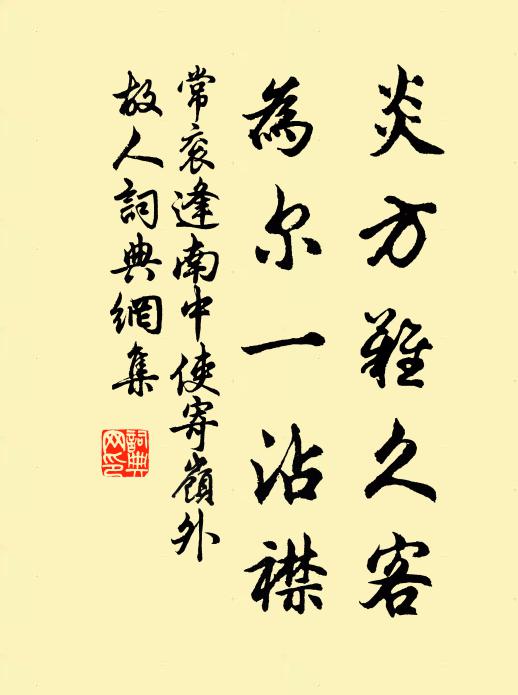 炎方難久客
為尔一沾襟
常衮逢南中使寄嶺外
故人詞典網集
詞典
网印